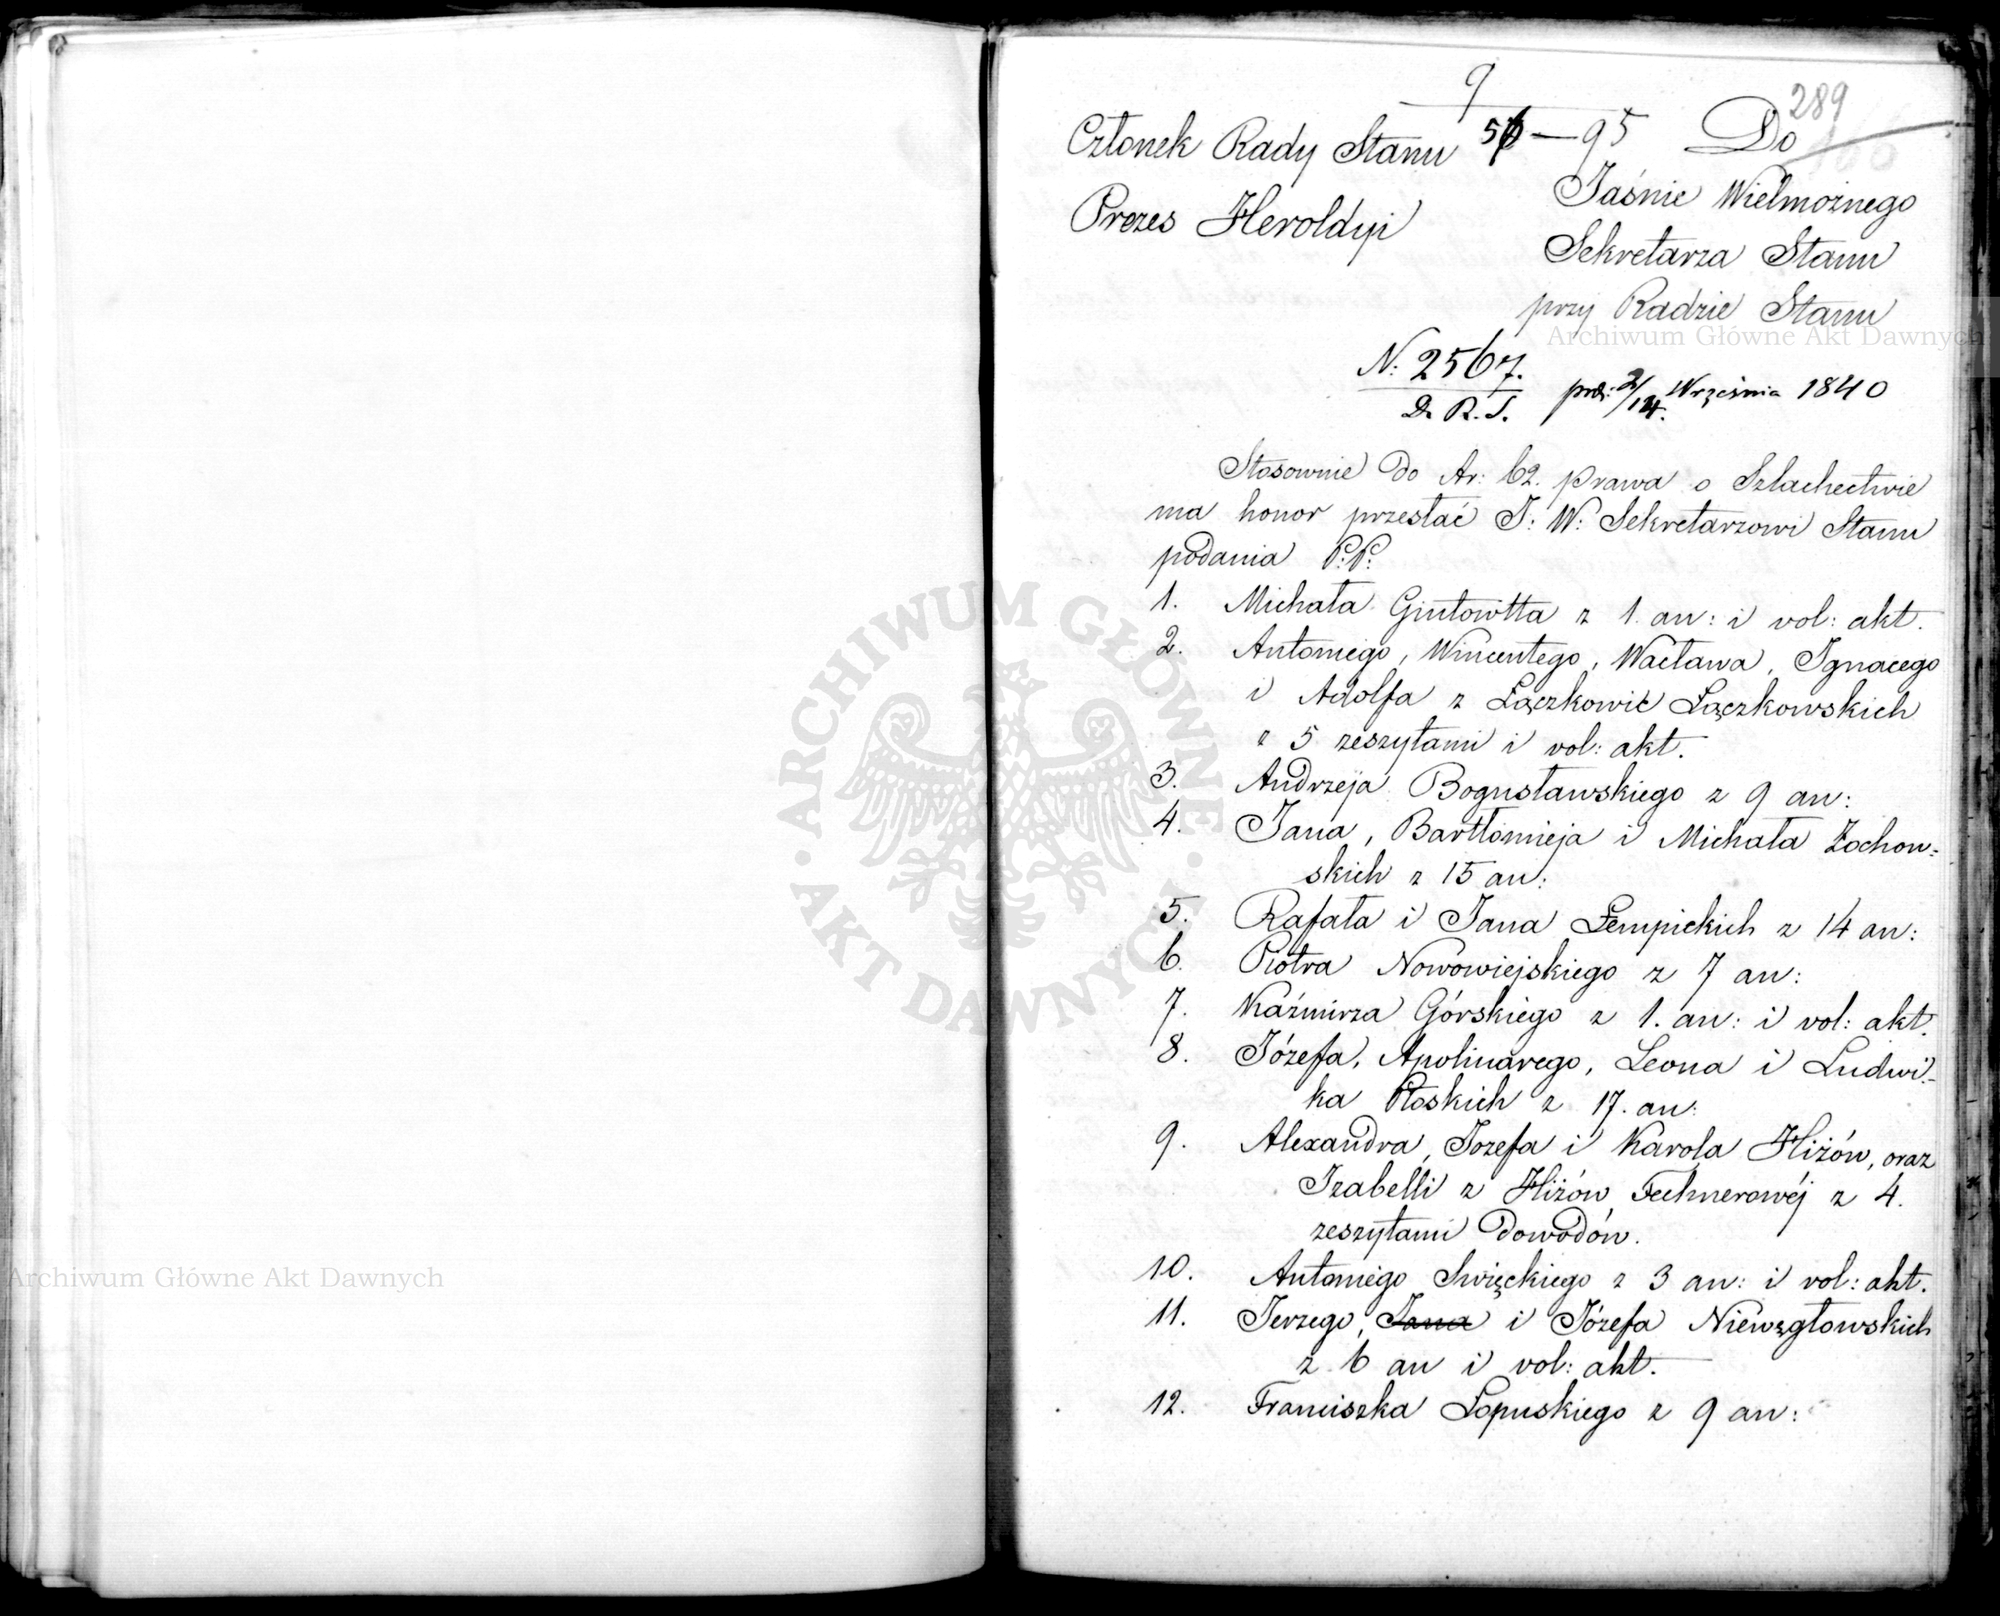 9
289
Członek Rady Stanu 57—95 Do
Jaśnie Wielmożnego
Prezes Heroldyi
Sekretarza Stanu
przy Radzie Stanu
Archiwum Główne Akt Dawnych
N: 2567.
D. R. S.
prez: 2/14. Września 1840
Stosownie do Ar: 62. prawa o Szlachectwie
ma honor przesłać J: W: Sekretarzowi Stanu
podania P.P.
1. Michała Gintowtta z 1. an: i vol: akt.
2. Antoniego, Wincentego, Wacława, Ignacego
i Adolfa z Łączkowic Łączkowskich
z 5 zeszytami i vol: akt.
3. Andrzeja Bogusławskiego z 9 an:
4. Jana, Bartłomieja i Michała Żochow=
skich z 15 an:
5. Rafała i Jana Łempickich z 14 an:
6. Piotra Nowowiejskiego z 7 an:
7. Kaźmirza Górskiego z 1. an: i vol: akt.
8. Józefa, Apolinarego, Leona i Ludwi=
ka Płoskich z 17. an:
9. Alexandra, Jozefa i Karola Hiżów, oraz
Izabelli z Hiżów Fechnerowéj z 4.
zeszytami dowodów.
10. Antoniego Swięckiego z 3 an: i vol: akt.
11. Jerzego, Jana i Józefa Niewęgłowskich
z 6 an i vol: akt.
12. Franciszka Łopuskiego z 9 an:
ARCHIWUM GŁÓWNE · AKT DAWNYCH ·
Archiwum Główne Akt Dawnych